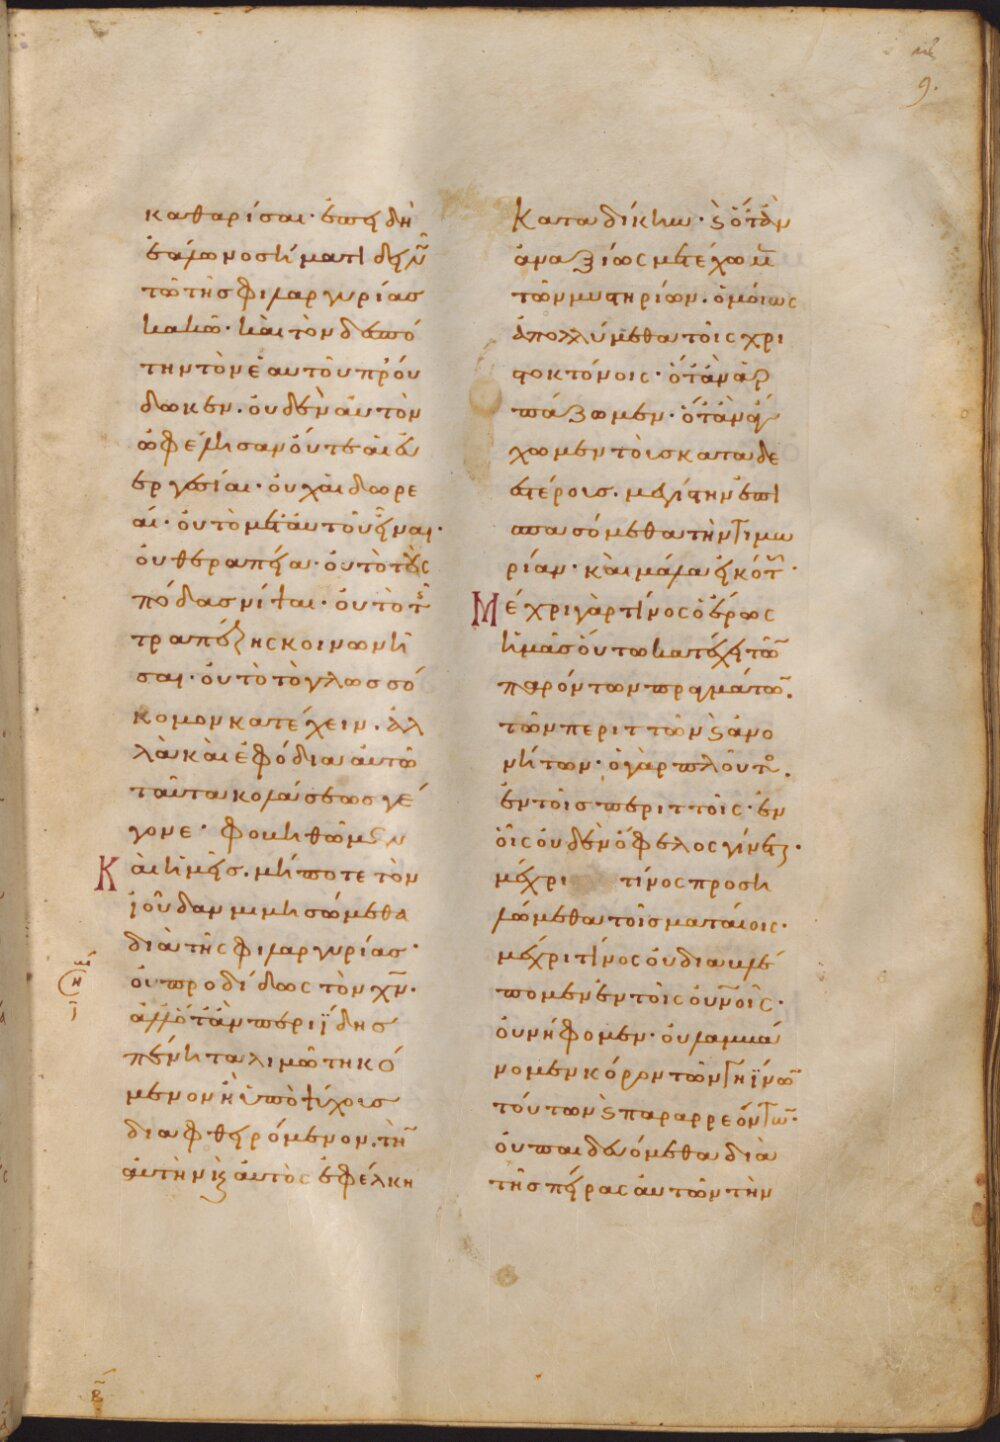 9.
καθαρίσαι· ἐπειδὴ
ἑάλω νοσήματι δεινῶ
τῶ τῆς φιλαργυρίας
κακῶ· καὶ τὸν δεσπό
την τὸν ἑαυτοῦ πρού
δωκεν. οὐδὲν αὐτὸν
ὠφέλησαν οὔτε αἱ εὐ
εργεσίαι· οὐχ αἱ δωρε
αί· οὐ τὸ μετ αὐτοῦ εἶναι·
οὐ θεραπεία· οὐ τὸ τοὺς
πόδας νίψαι· οὐ τὸ τῆς
τραπέζης κοινωνῆ
σαι· οὐ τὸ τὸ γλωσσό
κομον κατέχειν. ἀλ
λὰ καὶ ἐφόδια αὐτῶ
ταῦτα κολάσεως γέ
γονε· φοβηθῶμεν
Καὶ ἡμεῖς. μήποτε τὸν
ἰούδαν μιμησώμεθα
διὰ τῆς φιλαργυρίας·
οὐ προδίδως τὸν χν̅·
ἀλλ ὅταν περιΐδης
πένητα λιμῶ τηκό
μενον ἢ ὑπὸ ψύχους
διαφθειρόμενον. τὴν
αὐτὴν κ αὐτὸς ἐφέλκη
Καταδίκην· ϛ ὅταν
ἀναξίως μετέχωμεν
τῶν μυστηρίων. ὁμοίως
ἀπολλύμεθα τοῖς χρι
στοκτόνοις· ὅταν ἁρ
πάζωμεν· ὅταν ἄγ
χωμεν τοὺς καταδε
εστέρους. μεγίστην ἐπι
σπασόμεθα τὴν τιμω
ρίαν· καὶ μάλα εἰκότως·
Μέχρι γὰρ τίνος ὁ ἔρως
ἡμᾶς οὕτω κατέχει τῶν
παρόντων πραγμάτων.
τῶν περιττῶν ϛ ἀνο
νήτων· ὁ γὰρ πλοῦτος.
ἐν τοῖς περιττοῖς· ἐν
οἷς οὐδὲν ὄφελος γίνεται·
μέχρι τίνος προση
λώμεθα τοῖς ματαίοις·
μέχρι τίνος οὐ διαβλέ
πομεν ἐν τοῖς οὐνοῖς·
οὐ νήφομεν· οὐ λαμβά
νομεν κόρον τῶν γηΐνων
τούτων ϛ παραρρεόντων·
οὐ παιδευόμεθα διὰ
τῆς πείρας αὐτῶν τὴν